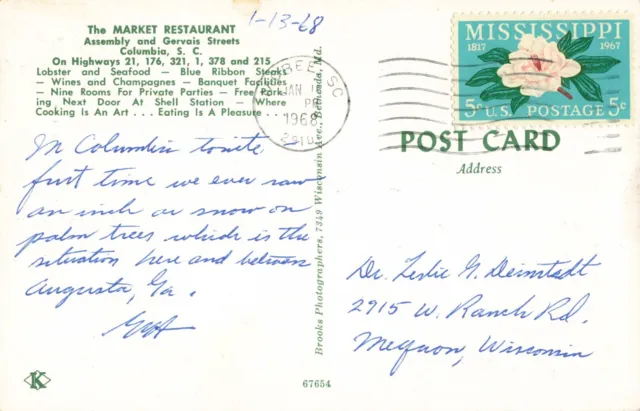 1-13-68
The MARKET RESTAURANT
Assembly and Gervais Streets
Columbia, S. C.
On Highways 21, 176, 321, 1, 378 and 215
Lobster and Seafood — Blue Ribbon Steaks
— Wines and Champagnes — Banquet Facilities
— Nine Rooms For Private Parties — Free Park-
ing Next Door At Shell Station — Where
Cooking Is An Art . . . Eating Is A Pleasure . . .
In Columbia tonite
first time we ever saw
an inch or snow on
palm trees which is the
situation here and between
Augusta, Ga.
K
Brooks Photographers, 7349 Wisconsin Ave., Bethesda, Md.
67654
SC
JAN
PM
1968
MISSISSIPPI
1817 1967
5c U.S. POSTAGE 5c
POST CARD
Address
Dr. Leslie G.
2915 W. Ranch Rd.
Mequon, Wisconsin